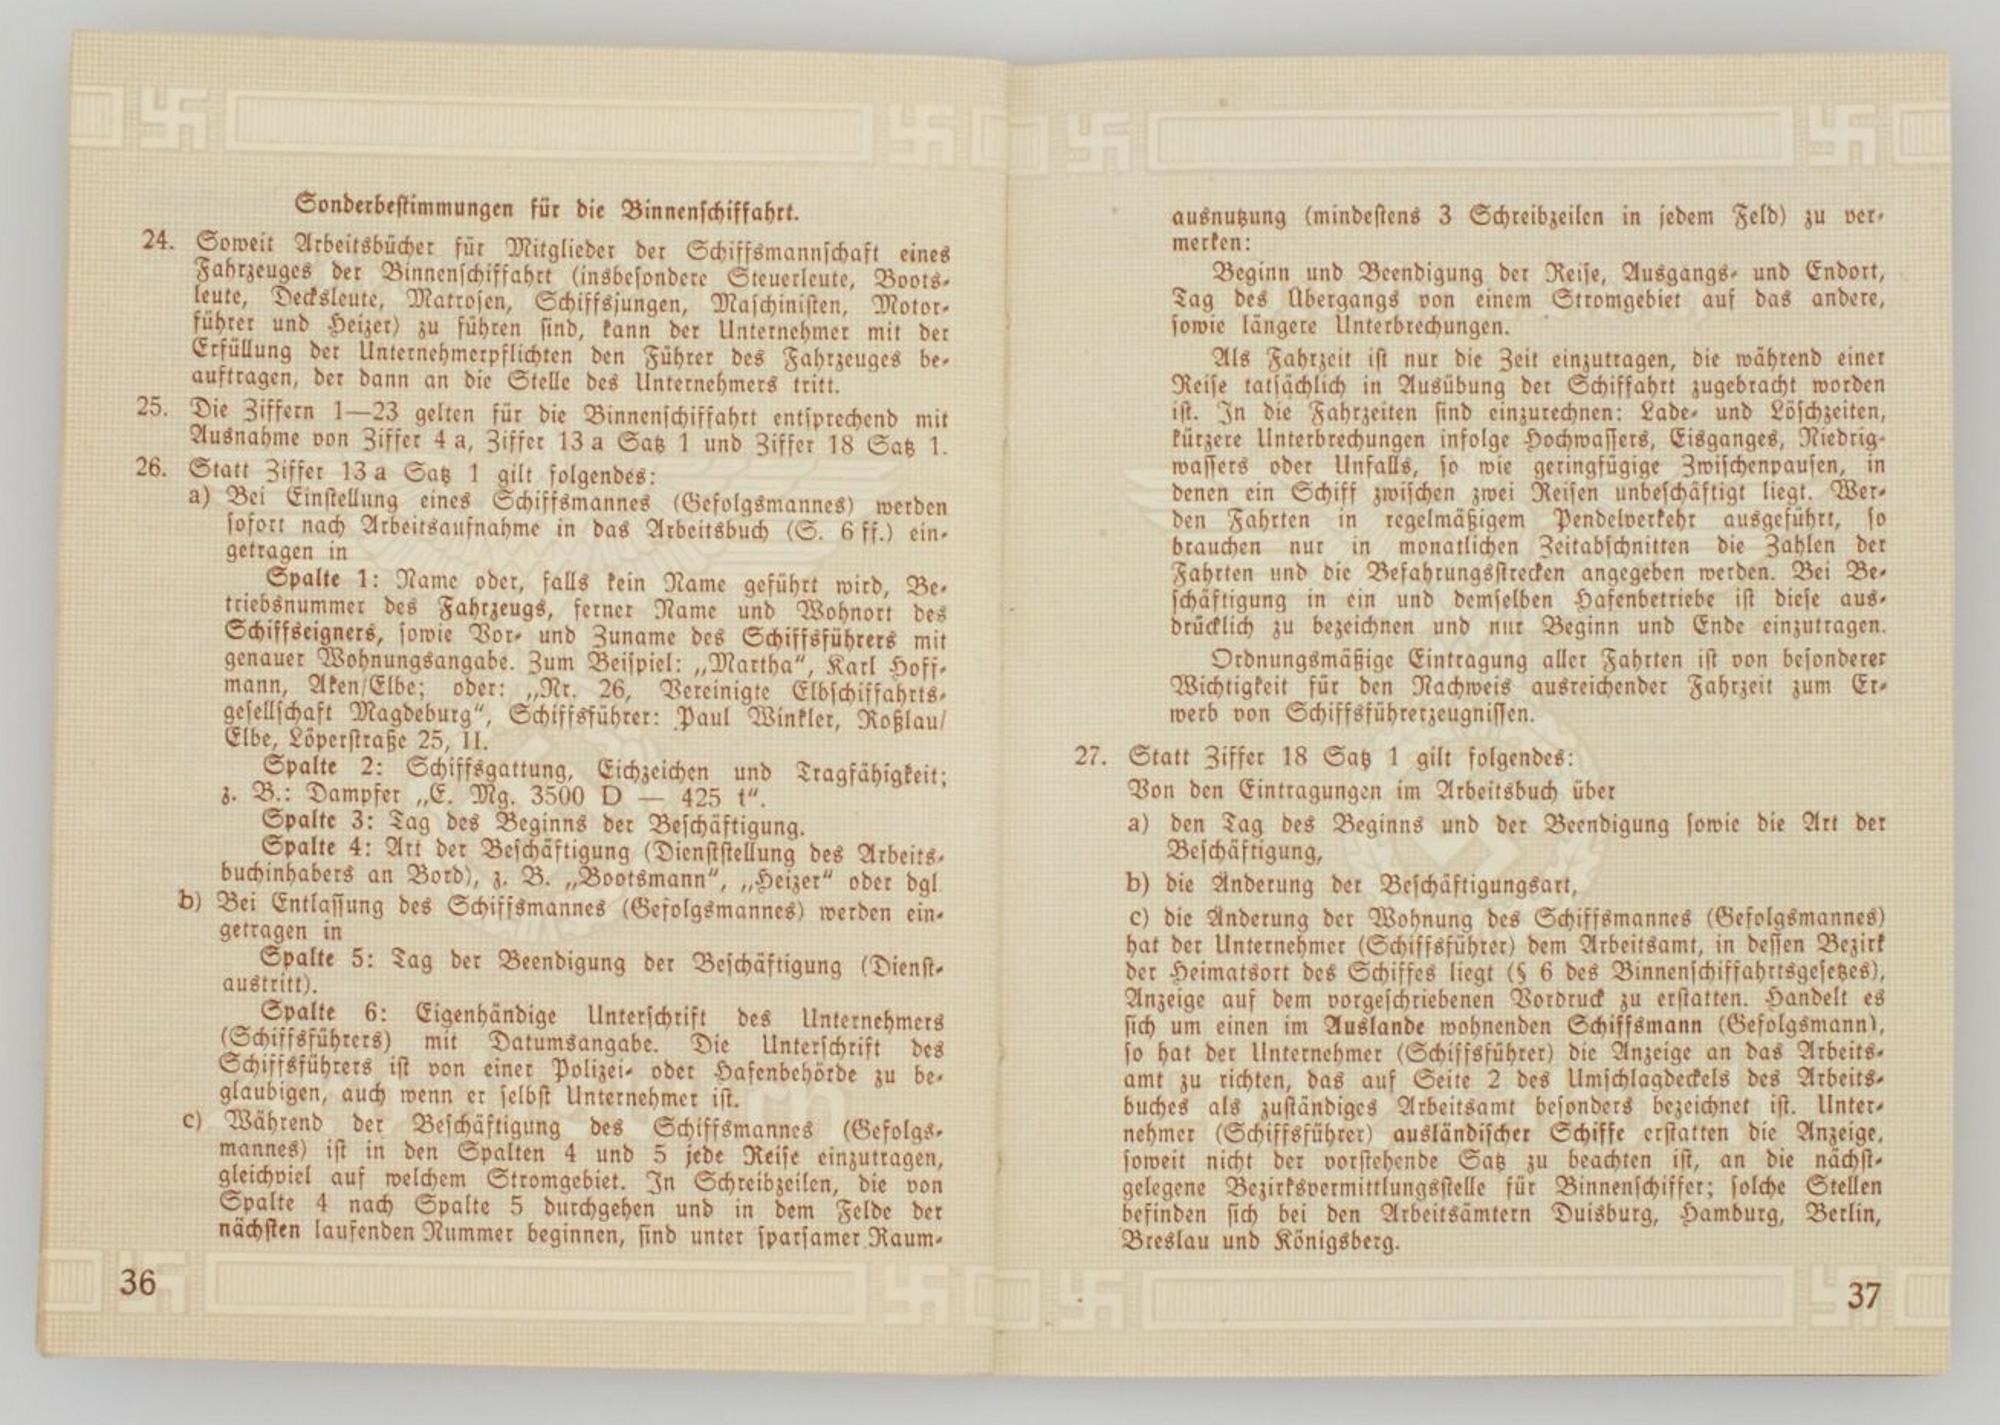 Sonderbestimmungen für die Binnenschiffahrt.
24. Soweit Arbeitsbücher für Mitglieder der Schiffsmannschaft eines
Fahrzeuges der Binnenschiffahrt (insbesondere Steuerleute, Boots-
leute, Decksleute, Matrosen, Schiffsjungen, Maschinisten, Motor-
führer und Heizer) zu führen sind, kann der Unternehmer mit der
Erfüllung der Unternehmerpflichten den Führer des Fahrzeuges be-
auftragen, der dann an die Stelle des Unternehmers tritt.
25. Die Ziffern 1—23 gelten für die Binnenschiffahrt entsprechend mit
Ausnahme von Ziffer 4 a, Ziffer 13 a Satz 1 und Ziffer 18 Satz 1.
26. Statt Ziffer 13 a Satz 1 gilt folgendes:
a) Bei Einstellung eines Schiffsmannes (Gefolgsmannes) werden
sofort nach Arbeitsaufnahme in das Arbeitsbuch (S. 6 ff.) ein-
getragen in
Spalte 1: Name oder, falls kein Name geführt wird, Be-
triebsnummer des Fahrzeugs, ferner Name und Wohnort des
Schiffseigners, sowie Vor- und Zuname des Schiffsführers mit
genauer Wohnungsangabe. Zum Beispiel: „Martha“, Karl Hoff-
mann, Aken/Elbe; oder: „Nr. 26, Vereinigte Elbschiffahrts-
gesellschaft Magdeburg“, Schiffsführer: Paul Winkler, Roßlau/
Elbe, Löperstraße 25, II.
Spalte 2: Schiffsgattung, Eichzeichen und Tragfähigkeit;
z. B.: Dampfer „E. Mg. 3500 D — 425 t“.
Spalte 3: Tag des Beginns der Beschäftigung.
Spalte 4: Art der Beschäftigung (Dienststellung des Arbeits-
buchinhabers an Bord), z. B. „Bootsmann“, „Heizer“ oder dgl.
b) Bei Entlassung des Schiffsmannes (Gefolgsmannes) werden ein-
getragen in
Spalte 5: Tag der Beendigung der Beschäftigung (Dienst-
austritt).
Spalte 6: Eigenhändige Unterschrift des Unternehmers
(Schiffsführers) mit Datumsangabe. Die Unterschrift des
Schiffsführers ist von einer Polizei- oder Hafenbehörde zu be-
glaubigen, auch wenn er selbst Unternehmer ist.
c) Während der Beschäftigung des Schiffsmannes (Gefolgs-
mannes) ist in den Spalten 4 und 5 jede Reise einzutragen,
gleichviel auf welchem Stromgebiet. In Schreibzeilen, die von
Spalte 4 nach Spalte 5 durchgehen und in dem Felde der
nächsten laufenden Nummer beginnen, sind unter sparsamer Raum-
36
ausnutzung (mindestens 3 Schreibzeilen in jedem Feld) zu ver-
merken:
Beginn und Beendigung der Reise, Ausgangs- und Endort,
Tag des Übergangs von einem Stromgebiet auf das andere,
sowie längere Unterbrechungen.
Als Fahrzeit ist nur die Zeit einzutragen, die während einer
Reise tatsächlich in Ausübung der Schiffahrt zugebracht worden
ist. In die Fahrzeiten sind einzurechnen: Lade- und Löschzeiten,
kürzere Unterbrechungen infolge Hochwassers, Eisganges, Niedrig-
wassers oder Unfalls, so wie geringfügige Zwischenpausen, in
denen ein Schiff zwischen zwei Reisen unbeschäftigt liegt. Wer-
den Fahrten in regelmäßigem Pendelverkehr ausgeführt, so
brauchen nur in monatlichen Zeitabschnitten die Zahlen der
Fahrten und die Befahrungsstrecken angegeben werden. Bei Be-
schäftigung in ein und demselben Hafenbetriebe ist diese aus-
drücklich zu bezeichnen und nur Beginn und Ende einzutragen.
Ordnungsmäßige Eintragung aller Fahrten ist von besonderer
Wichtigkeit für den Nachweis ausreichender Fahrzeit zum Er-
werb von Schiffsführerzeugnissen.
27. Statt Ziffer 18 Satz 1 gilt folgendes:
Von den Eintragungen im Arbeitsbuch über
a) den Tag des Beginns und der Beendigung sowie die Art der
Beschäftigung,
b) die Änderung der Beschäftigungsart,
c) die Änderung der Wohnung des Schiffsmannes (Gefolgsmannes)
hat der Unternehmer (Schiffsführer) dem Arbeitsamt, in dessen Bezirk
der Heimatsort des Schiffes liegt (§ 6 des Binnenschiffahrtsgesetzes),
Anzeige auf dem vorgeschriebenen Vordruck zu erstatten. Handelt es
sich um einen im Auslande wohnenden Schiffsmann (Gefolgsmann),
so hat der Unternehmer (Schiffsführer) die Anzeige an das Arbeits-
amt zu richten, das auf Seite 2 des Umschlagdeckels des Arbeits-
buches als zuständiges Arbeitsamt besonders bezeichnet ist. Unter-
nehmer (Schiffsführer) ausländischer Schiffe erstatten die Anzeige,
soweit nicht der vorstehende Satz zu beachten ist, an die nächst-
gelegene Bezirksvermittlungsstelle für Binnenschiffer; solche Stellen
befinden sich bei den Arbeitsämtern Duisburg, Hamburg, Berlin,
Breslau und Königsberg.
37